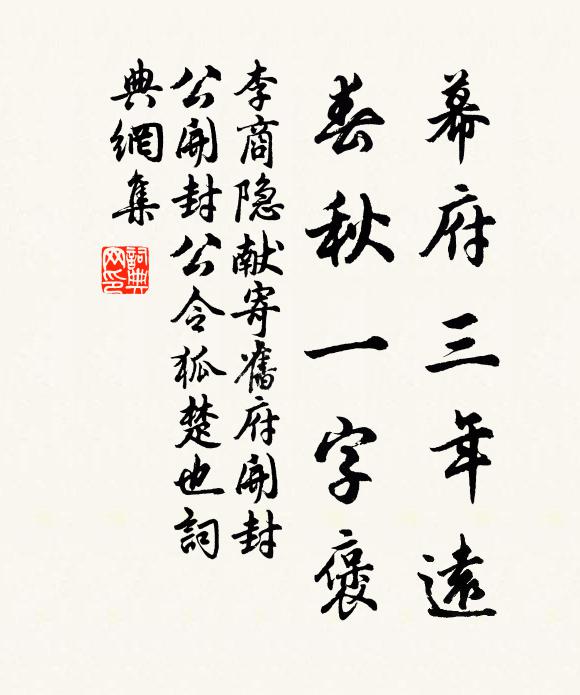 幕府三年遠
春秋一字褒
李商隐献寄舊府開封
公開封公令狐楚也詞
典網集
詞典網印